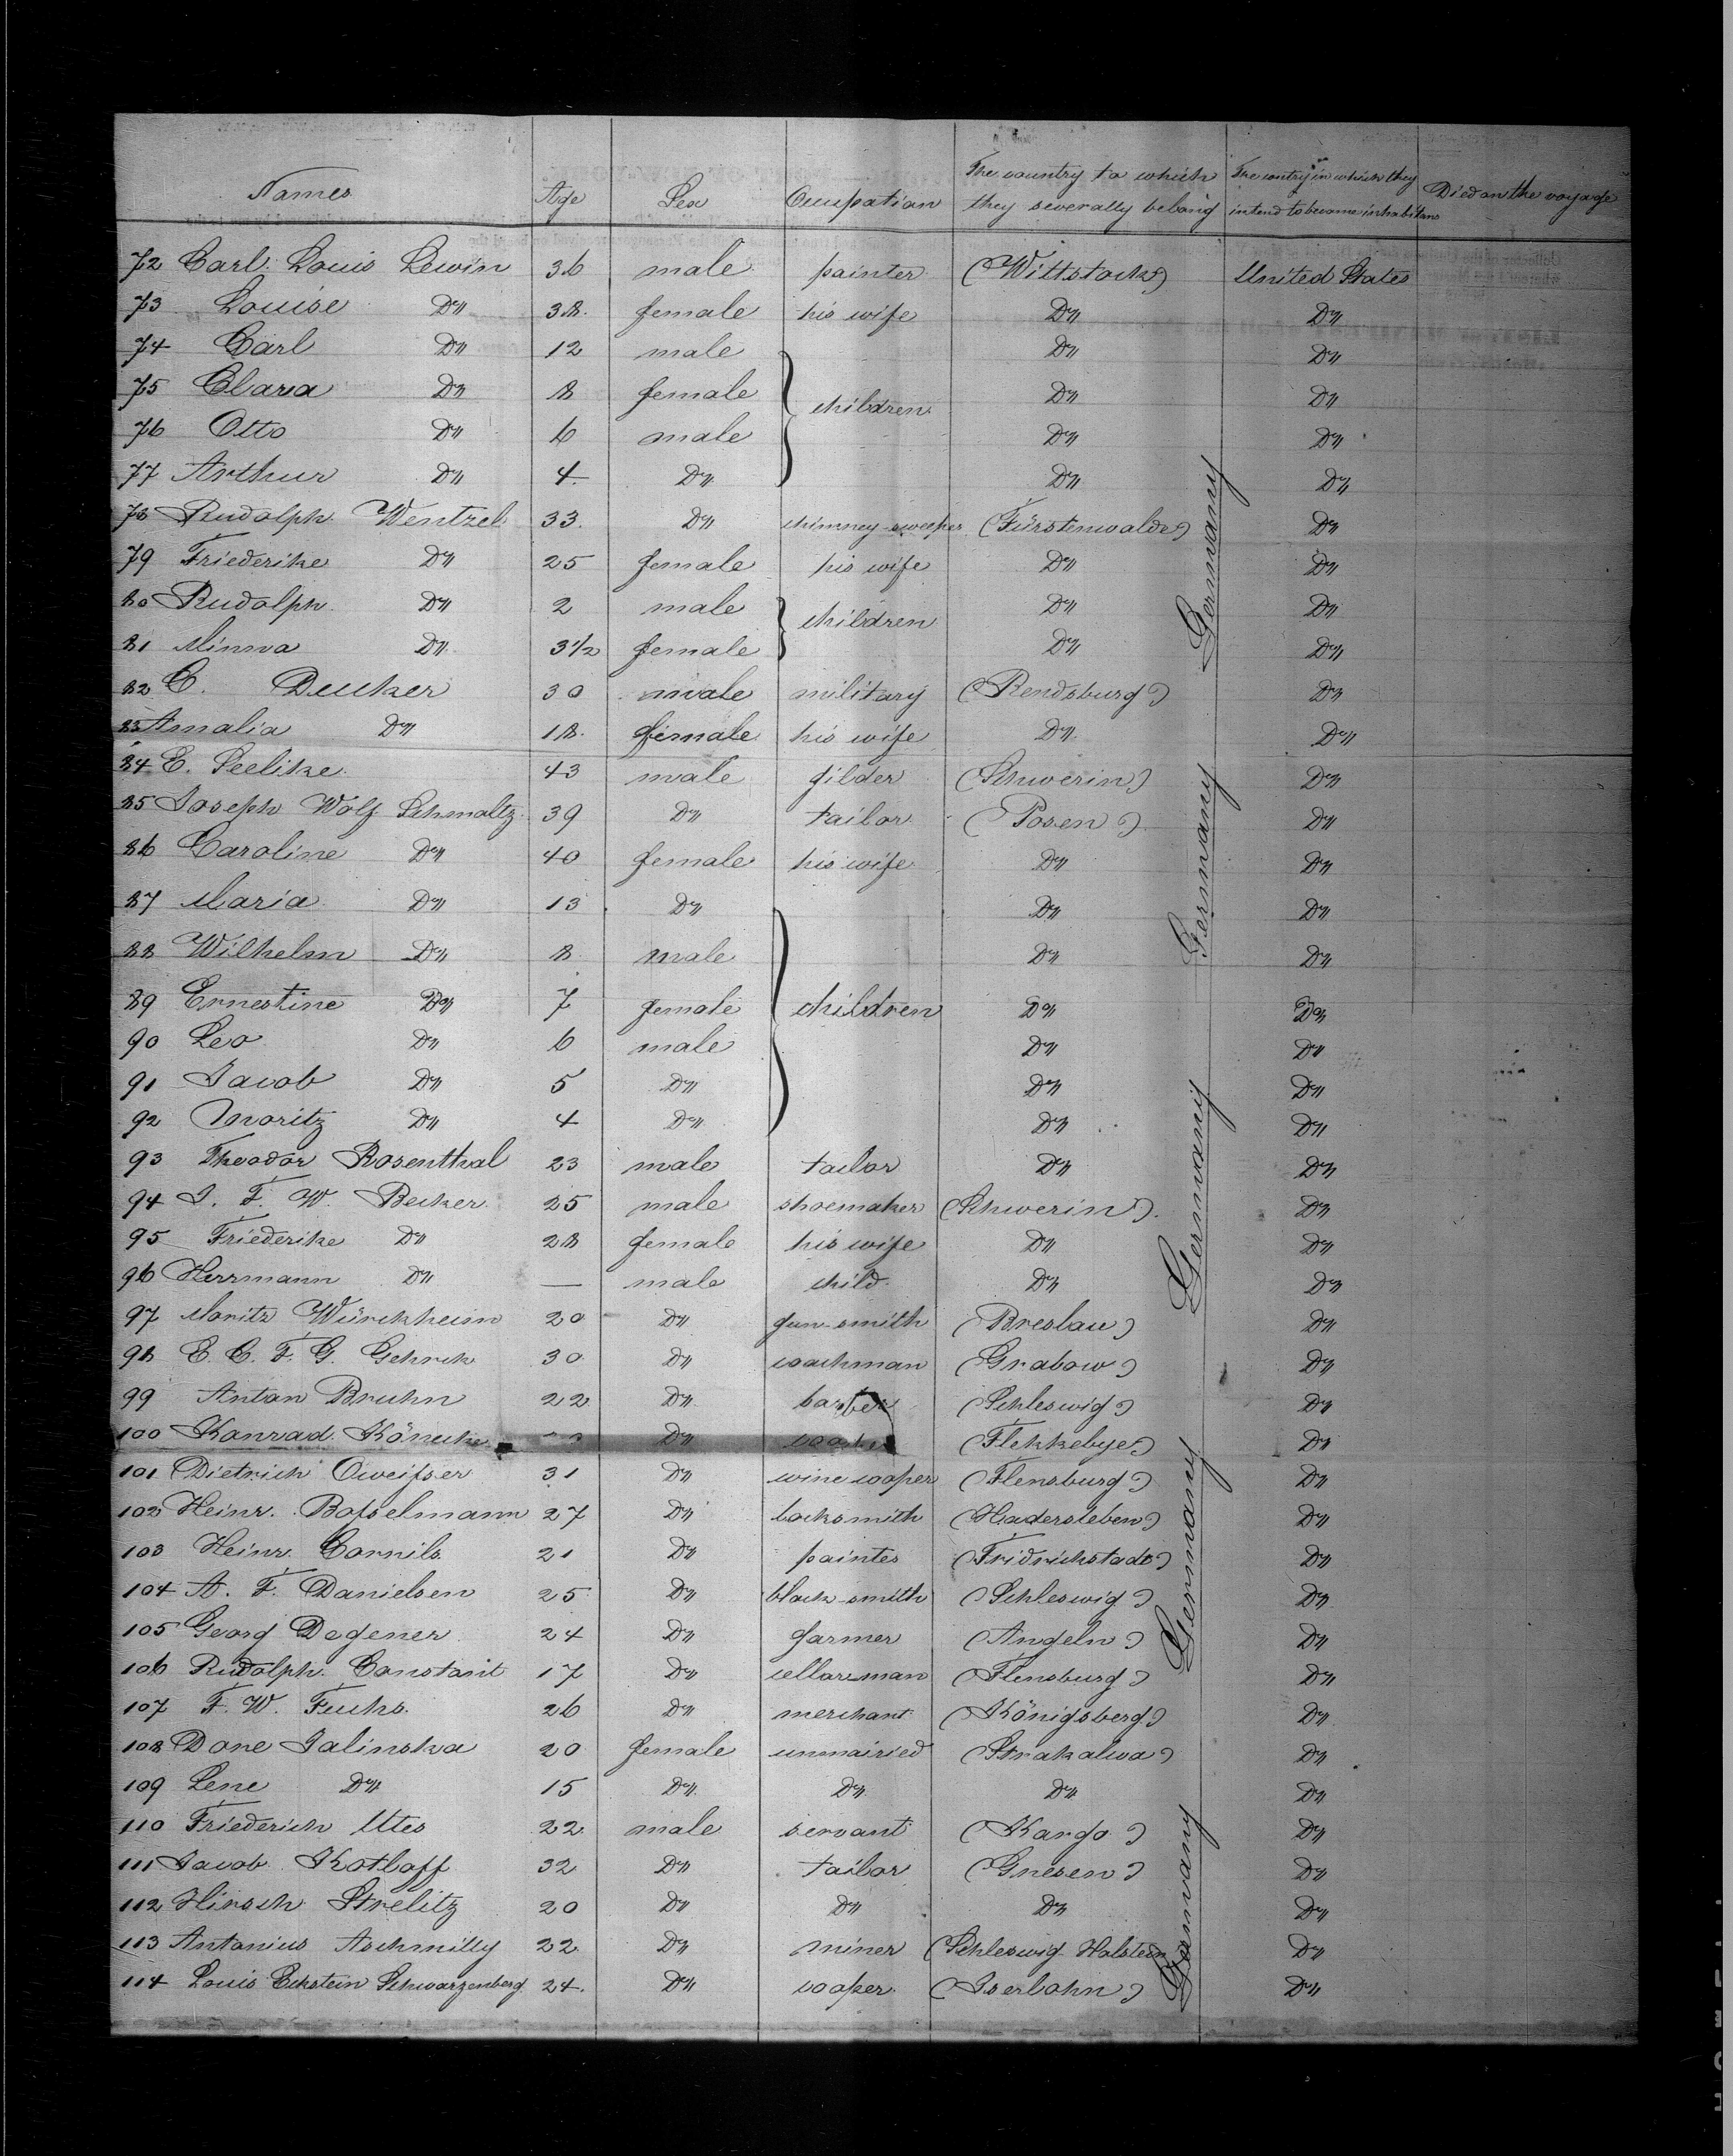 Names Age Sex Occupation The country to which they severally belong The contry in which they intend to become inhabitans Died on the voyage
72 Carl Louis Lewin 36 male painter (Wittstock) United States
73 Louise Do 38. female his wife Do Do
74 Carl Do 12 male Do Do
75 Clara Do 8 female children Do Do
76 Otto Do 6 male Do Do
77 Arthur Do 4 Do Do Do
78 Rudolph Wentzel 33. Do chimney-sweeper (Fürstenwalde) Do
79 Friederike Do 25 female his wife Do Do
80 Rudolph Do 2 male children Do Do
81 Minna Do 3 1/2 female Do Do
Germany
82 C. Deucker 30 male military (Rendsburg) Do
83 Amalia Do 18. female his wife Do Do
84 E. Seelike 43 male gilder (Schwerin) Do
85 Joseph Wolf Schmaltz 39 Do tailor (Posen) Do
86 Caroline Do 40 female his wife Do Do
87 Maria Do 13 Do Do Do
88 Wilhelm Do 8 male Do Do
Germany
89 Ernestine Do 7 female children Do Do
90 Leo Do 6 male Do Do
91 Jacob Do 5 Do Do Do
92 Moritz Do 4 Do Do Do
93 Theodor Rosenthal 23 male tailor Do Do
94 J. F. W. Becker 25 male shoemaker (Schwerin). Do
95 Friederike Do 28 female his wife Do Do
96 Herrmann Do — male child Do Do
Germany
97 Moritz Würckheim 20 Do gun-smith (Breslau) Do
98 E. C. F. G. Gehrck 30 Do coachman (Grabow) Do
99 Anton Bruhn 22 Do barber (Schleswig) Do
100 Konrad Do (Flekkebye) Do
101 Dietrich Oweisser 31 Do wine cooper (Flensburg) Do
102 Heinr. Bosselmann 27 Do locksmith (Hadersleben) Do
103 Heinr. Cornils 21 Do painter (Fridrichstadt) Do
104 A. F. Danielsen 25 Do black-smith (Schleswig) Do
105 Georg Degener 24 Do farmer (Angeln) Do
Germany
106 Rudolph Constant 17 Do cellar-man (Flensburg) Do
107 F. W. Fuchs 26 Do merchant (Königsberg) Do
108 Dore Jalinska 20 female unmairied (Strakalwa) Do
109 Lene Do 15 Do Do Do Do
110 Friederich Utes 22 male servant (Kargo) Do
111 Jacob Kotloff 32 Do tailor (Gnesen) Do
112 Hirsch Strelitz 20 Do Do Do Do
113 Antonius Aschmilly 22 Do miner (Schleswig Holstein) Do
114 Louis Eckstein Schwarzenberg 24. Do cooper (Iserlohn) Do
Germany